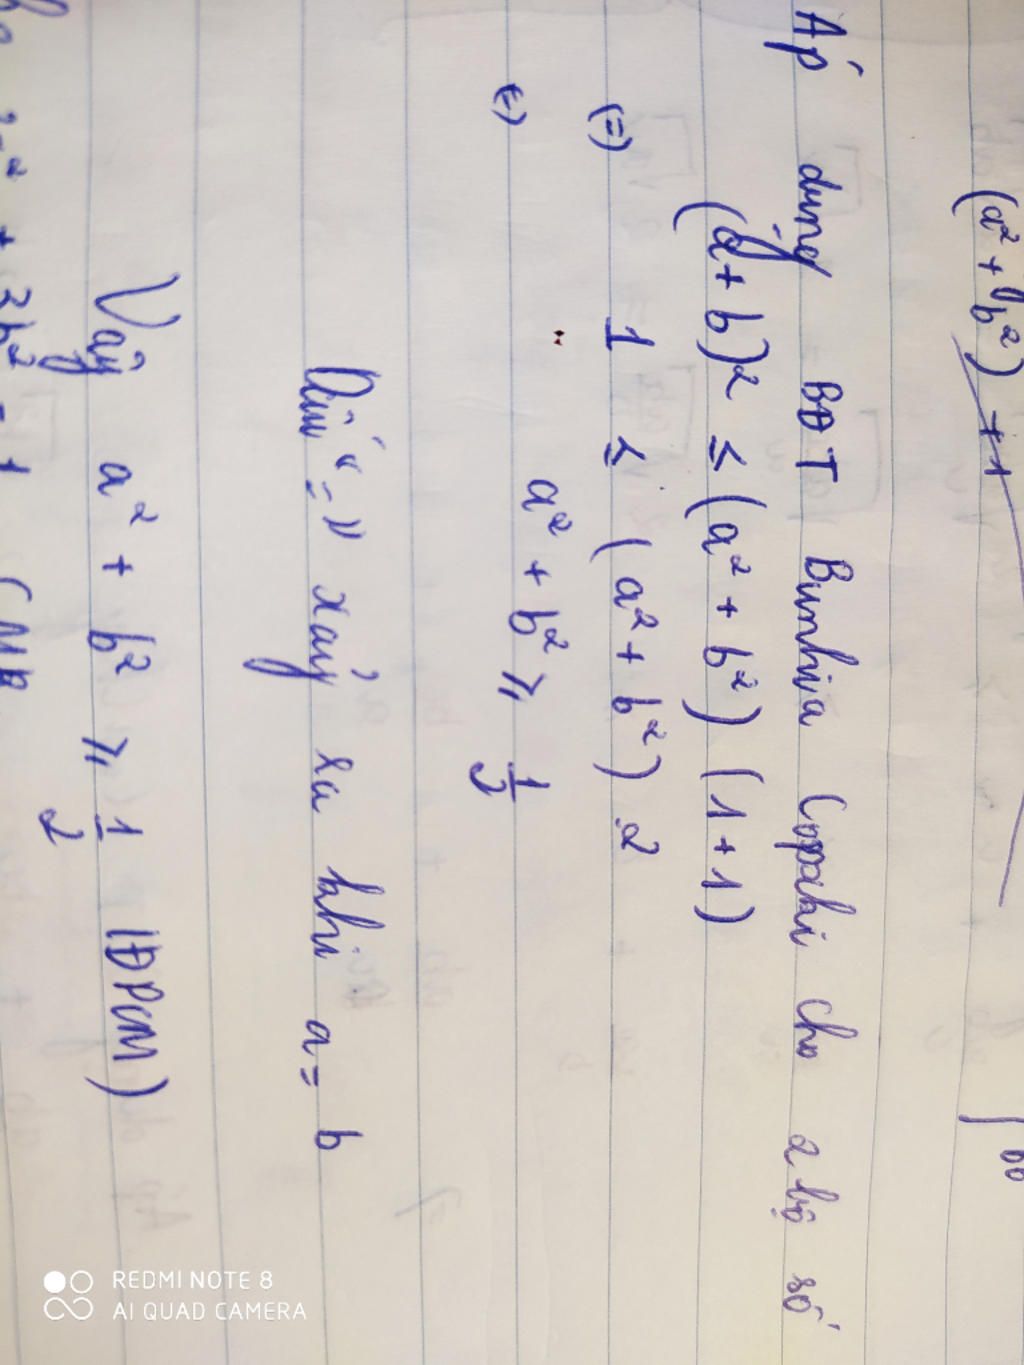 (a² + b²) + 1
Áp dụng BĐT Bunhia Copxki cho 2 bộ số
(a + b)² ≤ (a² + b²) (1 + 1)
(=) 1 ≤ (a² + b²) 2
(=) a² + b² ≥ 1/2
Dấu "=" xảy ra khi a = b
Vậy a² + b² ≥ 1/2 (ĐPCM)
REDMI NOTE 8
AI QUAD CAMERA